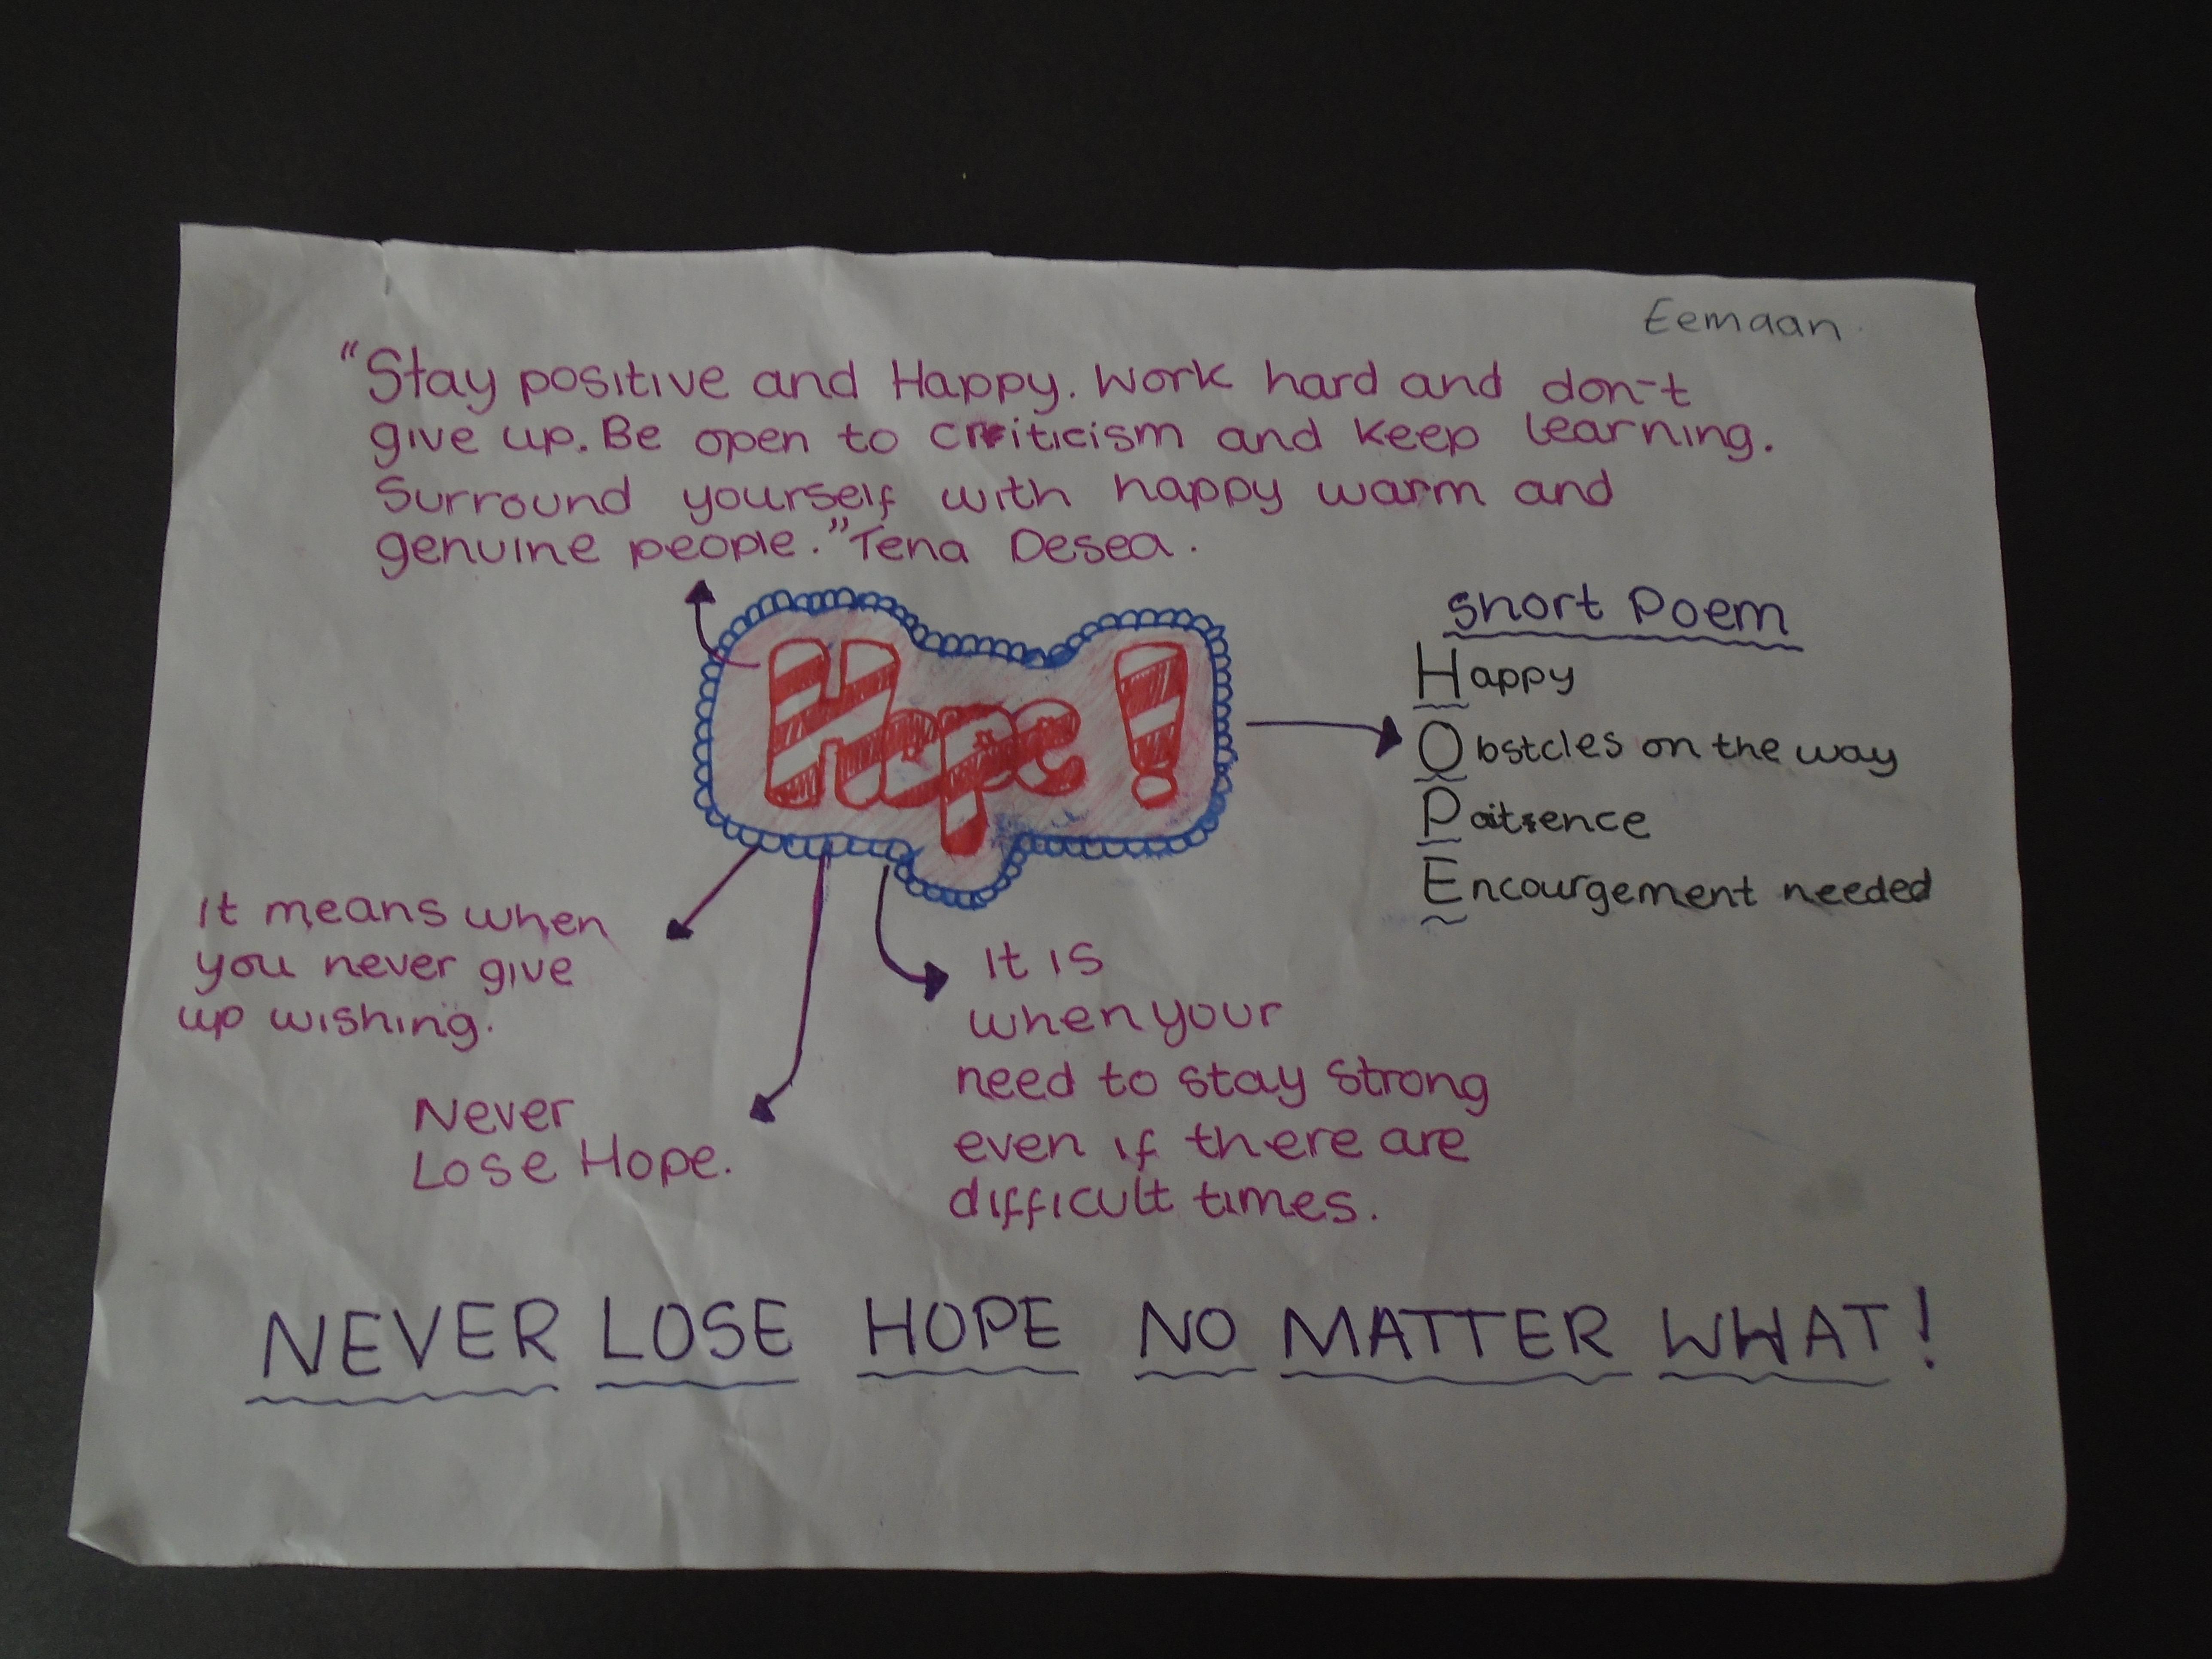 Eemaan
"Stay positive and Happy. Work hard and don't
give up. Be open to criticism and keep learning.
Surround yourself with happy warm and
genuine people." Tena Desea.
Hope!
Short Poem
Happy
Obstcles on the way
Paitence
Encourgement needed
It means when
you never give
up wishing.
Never
Lose Hope.
It is
when your
need to stay strong
even if there are
difficult times.
NEVER LOSE HOPE NO MATTER WHAT!